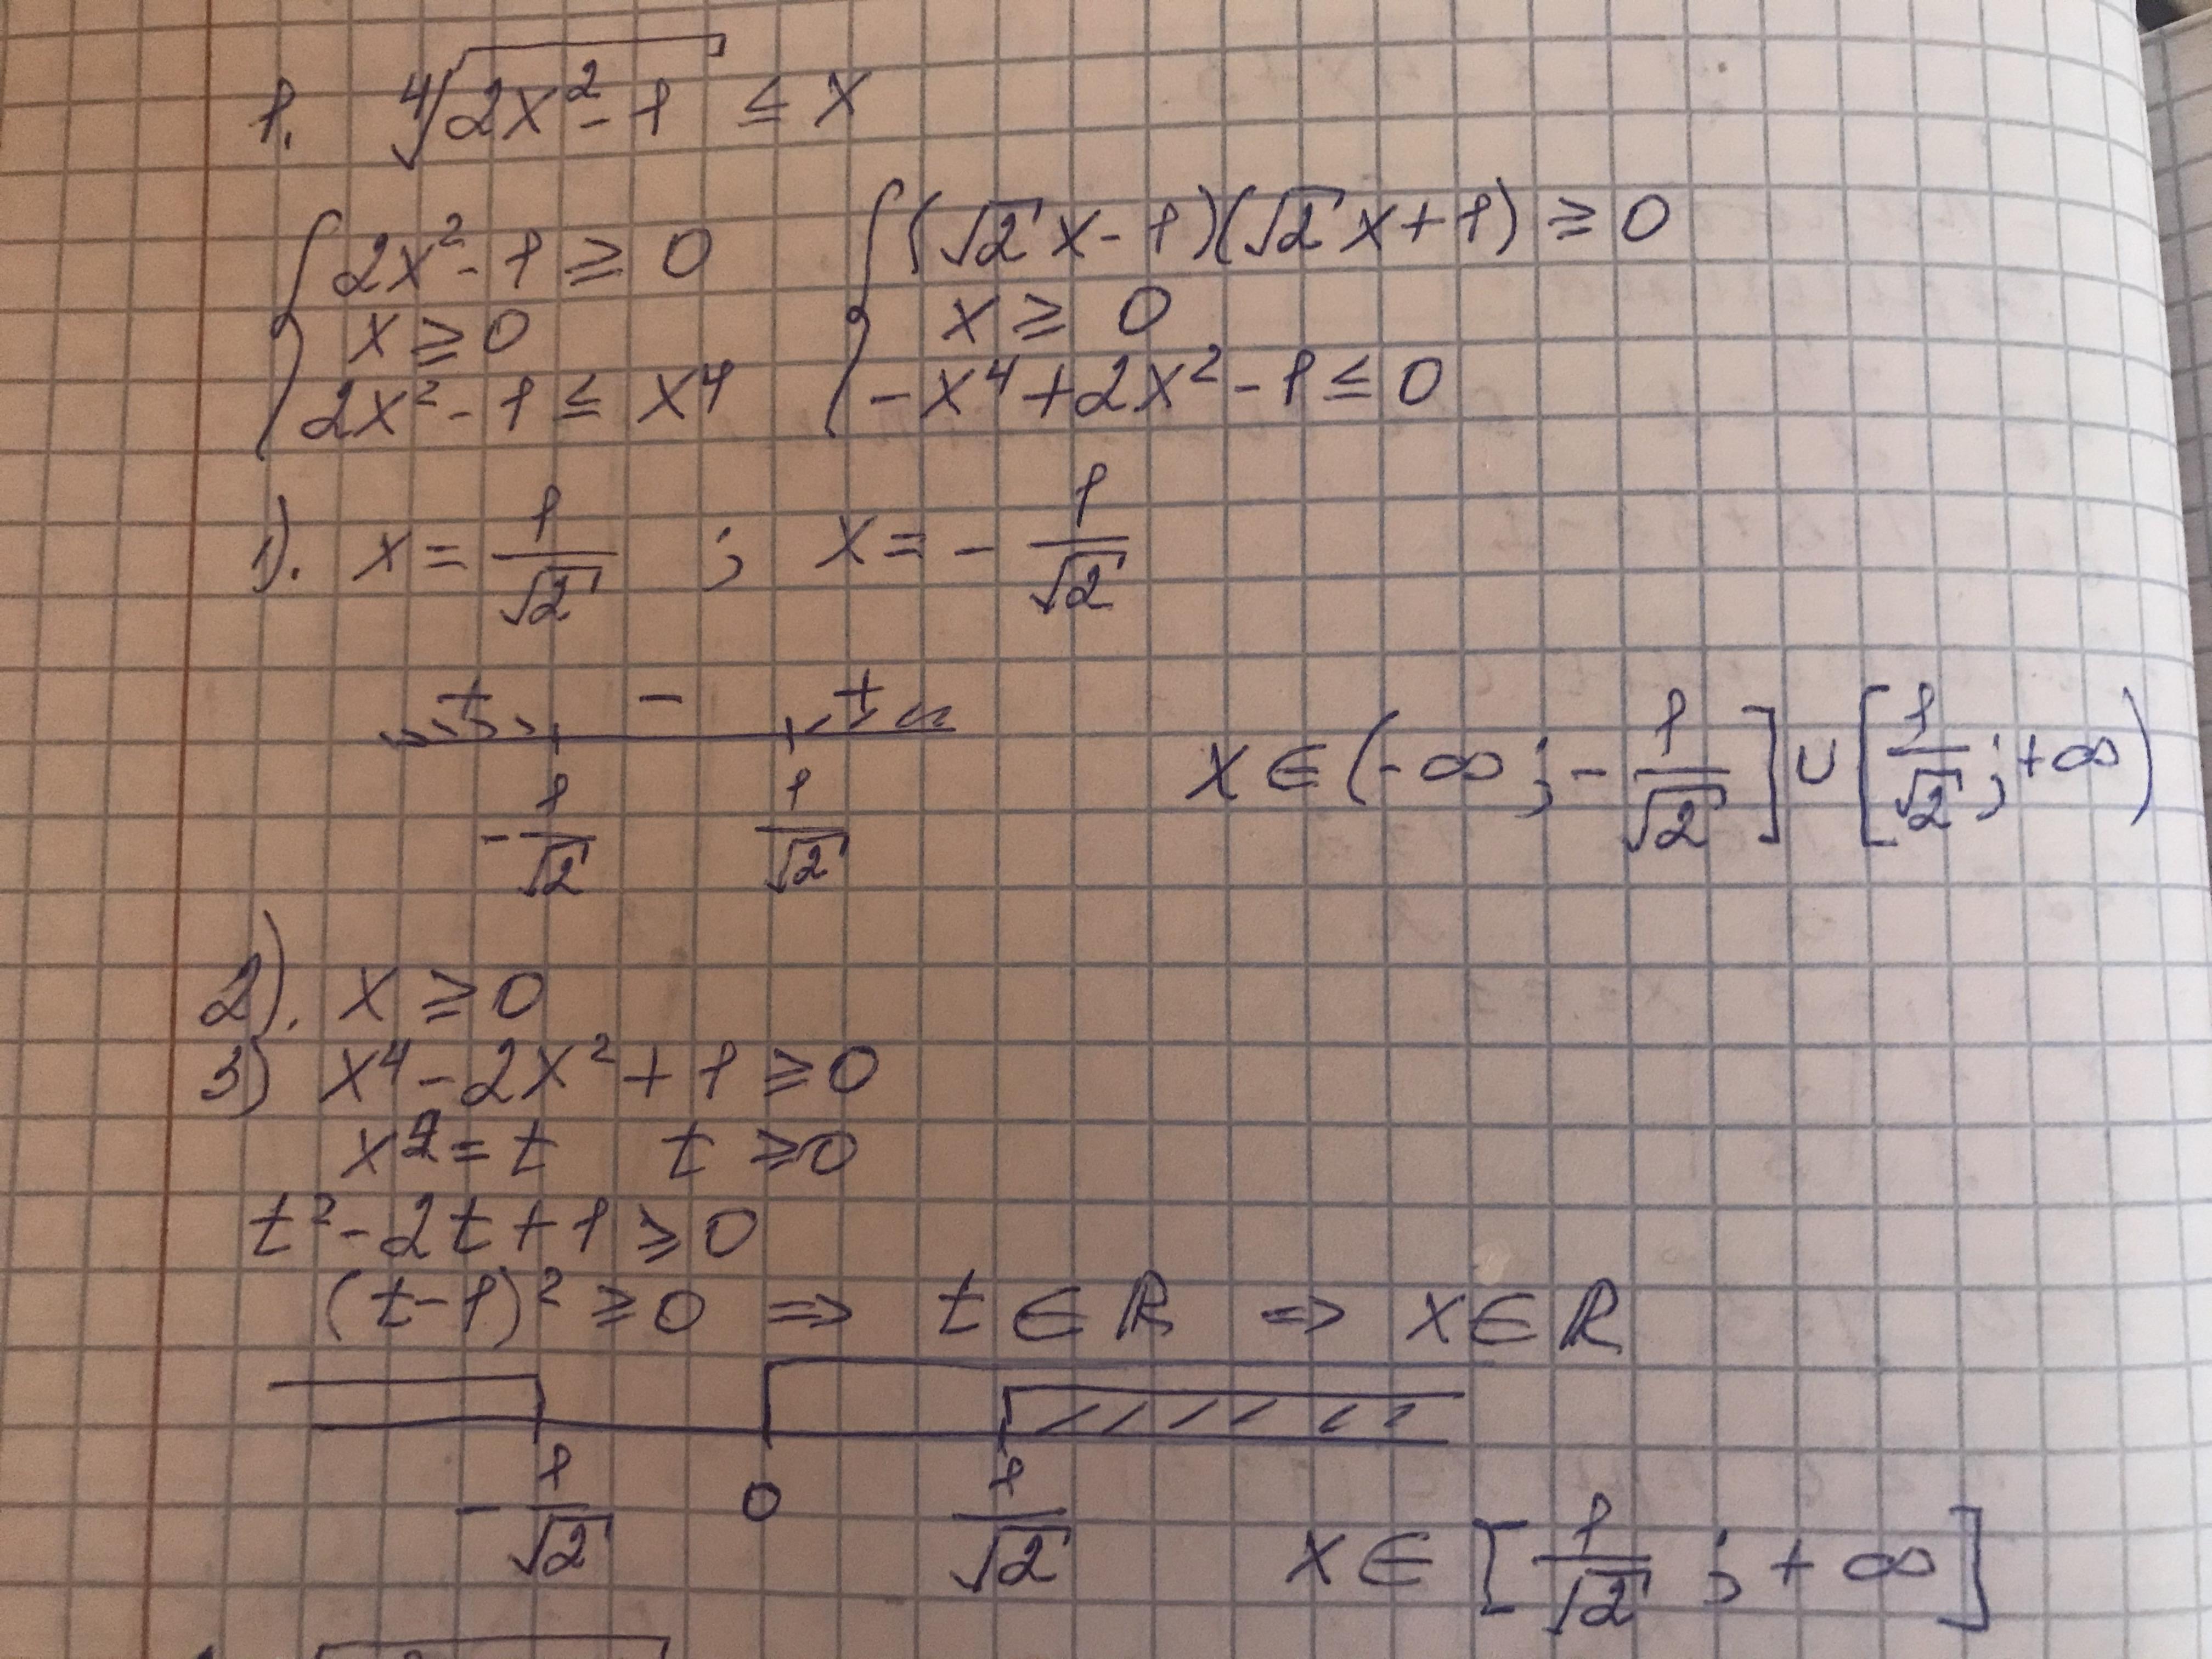 1. ⁴√(2x² - 1) ≤ x
{ 2x² - 1 ≥ 0 { (√2 x - 1)(√2 x + 1) ≥ 0
x ≥ 0 x ≥ 0
2x² - 1 ≤ x⁴ -x⁴ + 2x² - 1 ≤ 0
1). x = 1/√2 ; x = - 1/√2
+ - +
-1/√2 1/√2 x ∈ (-∞ ; -1/√2] ∪ [1/√2 ; +∞)
2). x ≥ 0
3) x⁴ - 2x² + 1 ≥ 0
x² = t t ≥ 0
t² - 2t + 1 ≥ 0
(t - 1)² ≥ 0 ⇒ t ∈ ℝ ⇒ x ∈ ℝ
-1/√2 0 1/√2 x ∈ [1/√2 ; +∞]